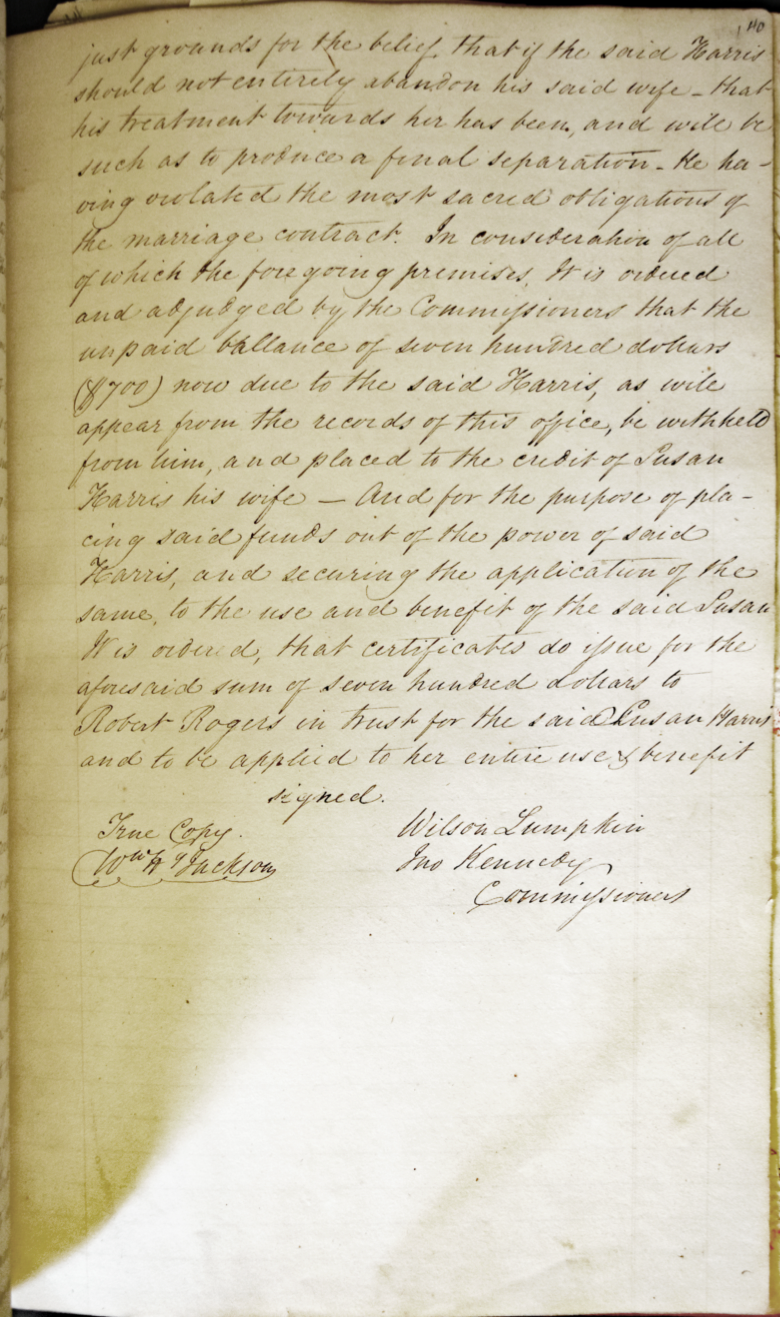 140
just grounds for the belief, that if the said Harris
should not entirely abandon his said wife - that
his treatment towards her has been, and will be
such as to produce a final separation - He ha-
ving violated the most sacred obligations of
the marriage contract. In consideration of all
of which the foregoing premises, It is ordered
and adjudged by the Commissioners that the
unpaid ballance of seven hundred dollars
($700) now due to the said Harris, as will
appear from the records of this office, be withheld
from him, and placed to the credit of Susan
Harris his wife — And for the purpose of pla-
cing said funds out of the power of said
Harris, and securing the application of the
same, to the use and benefit of the said Susan
It is ordered, that certificates do issue for the
aforesaid sum of seven hundred dollars to
Robert Rogers in trust for the said Susan Harris
and to be applied to her entire use & benefit
signed.
True Copy. Wilson Lumpkin
Wm H Jackson Jno Kennedy
Commissioners